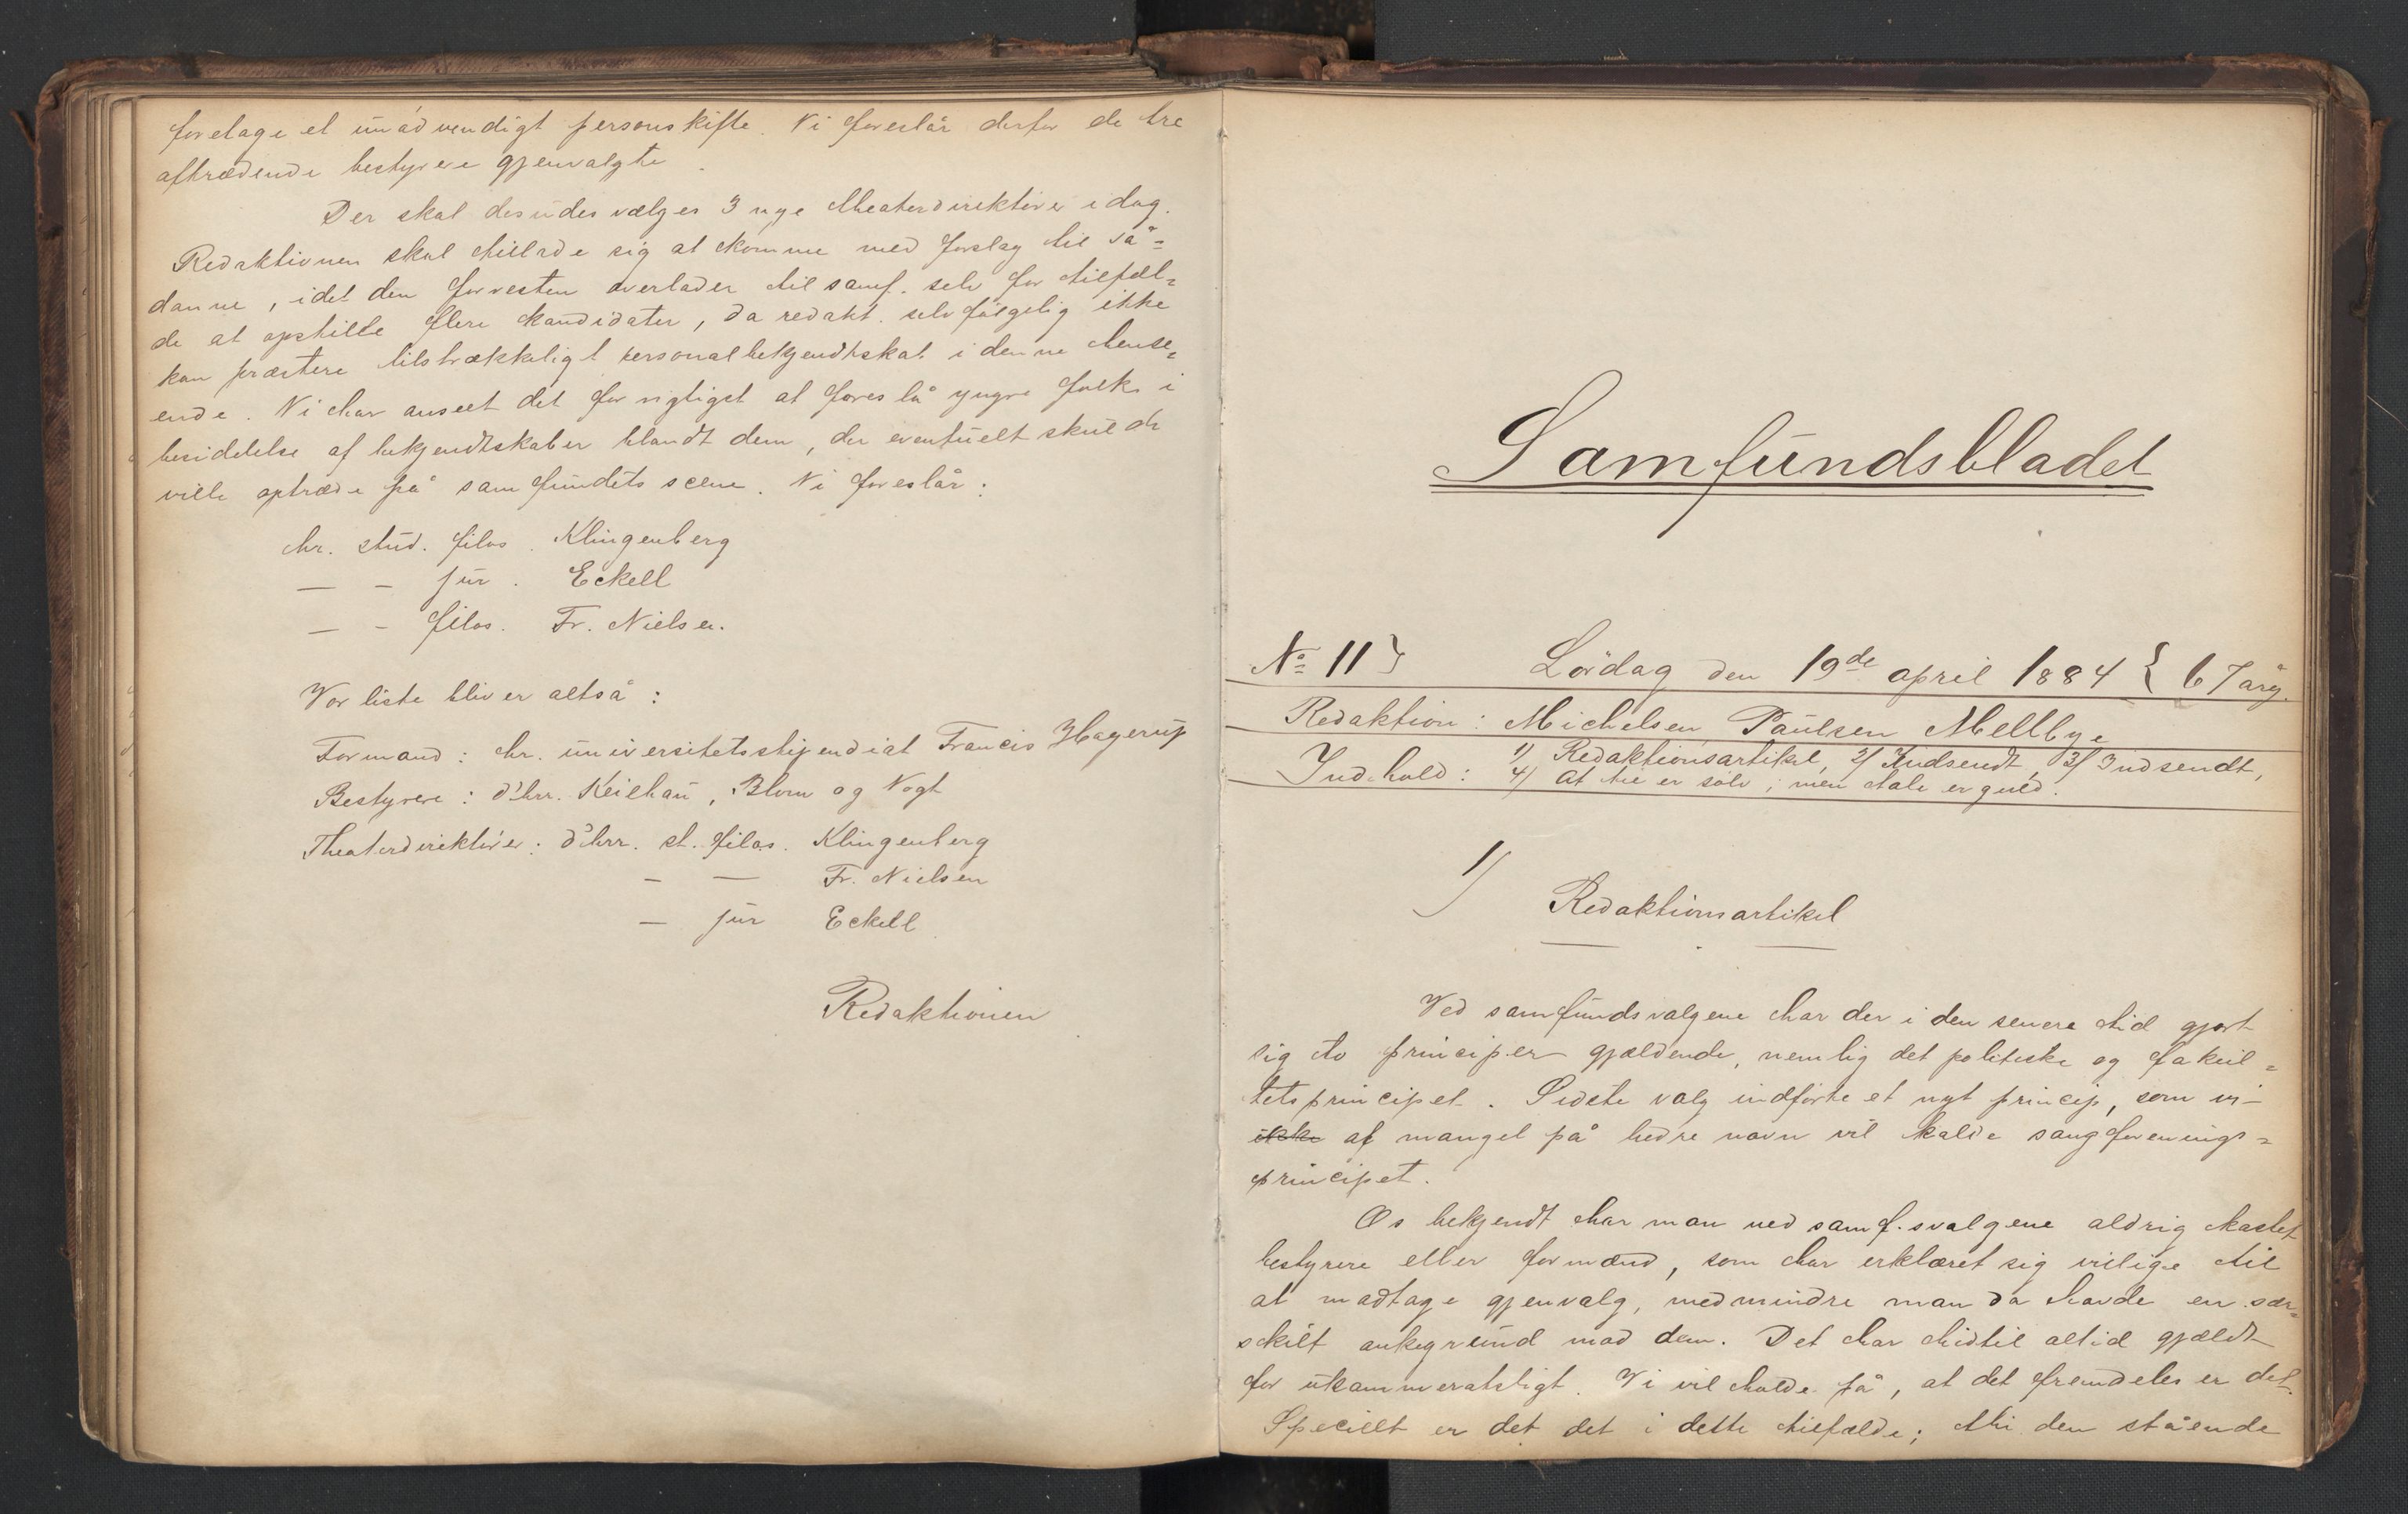 foretage et unødvendigt personskifte. Vi foreslår derfor de tre
aftrædende bestyrere gjenvalgte.
Der skal desuden vælges 3 nye theaterdirektører idag.
Redaktionen skal tillade sig at komme med forslag til så=
danne, idet den forresten overlader til samf. selv for tilfæl=
de at opstille flere kandidater, da redakt. selvfølgelig ikke
kan præstere tilstrækkeligt personalbekjendtskab i denne hense=
ende. Vi har anseet det for rigtigst at foreslå yngre folk i
besiddelse af bekjendtskaber blandt dem, der eventuelt skulde
ville optræde på samfundets scene. Vi foreslår:
hr. stud. filos. Klingenberg
— - jur. Eckell
— - filos. Fr. Nielsen.
Vor liste bliver altså:
Formand: hr. universitetsstipendiat Francis Hagerup
Bestyrere: d'hrr. Keilhau, Blom og Vogt
Theaterdirektører: d'hrr. st. filos. Klingenberg
- — Fr. Nielsen
— jur Eckell
Redaktionen
Samfundsbladet
No 11} Lørdag den 19de april 1884 { 67 årg.
Redaktion: Michelsen Paulsen Mellbye
Indhold: 1) Redaktionsartikel, 2) Indsendt, 3) Indsendt,
4) At tie er sølv; men tale er guld.
1)
Redaktionsartikel
Ved samfundsvalgene har der i den senere tid gjort
sig to principer gjældende, nemlig det politiske og fakul=
tetsprincipet. Sidste valg indførte et nyt princip, som vi
ikke af mangel på bedre navn vil kalde sangforenings=
principet.
Os bekjendt har man ved samf.svalgene aldrig kastet
bestyrere eller formænd, som har erklæret sig villige til
at modtage gjenvalg, medmindre man da havde en sær=
skilt ankegrund mod dem. Det har hidtil altid gjældt
for ukammeratsligt. Vi vil holde på, at det fremdeles er det.
Specielt er det det i dette tilfælde; thi den stående